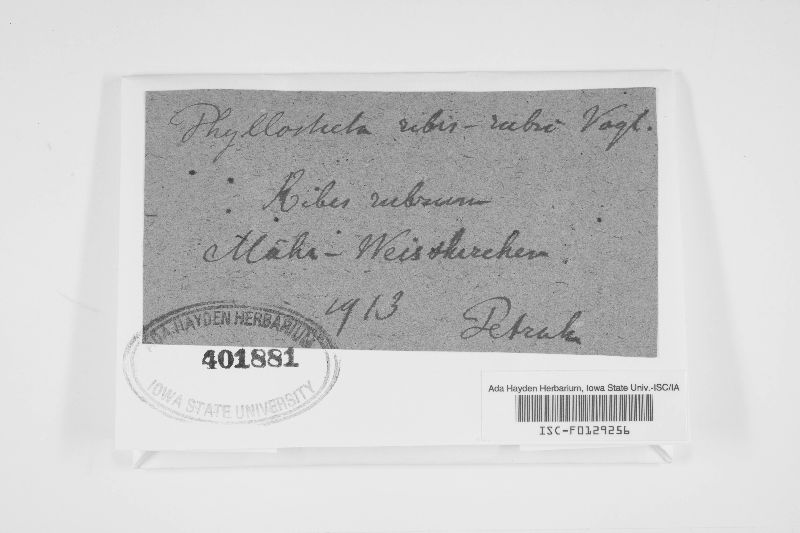 Phyllosticta ribis-rubri Vogl.
Ribes rubrum
Mähr-Weisskirchen.
1913
Petrak
ADA HAYDEN HERBARIUM
401881
IOWA STATE UNIVERSITY
Ada Hayden Herbarium, Iowa State Univ.-ISC/IA
ISC-F0129256